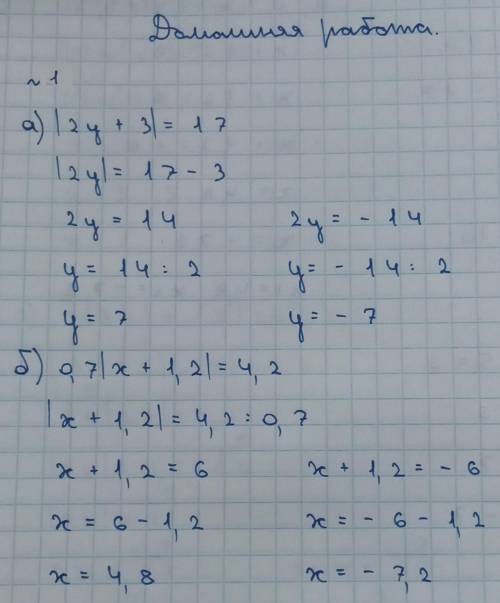 Домашняя работа.
~ 1
а) |2y + 3| = 17
|2y| = 17 - 3
2y = 14 2y = - 14
y = 14 : 2 y = - 14 : 2
y = 7 y = - 7
б) 0,7|x + 1,2| = 4,2
|x + 1,2| = 4,2 : 0,7
x + 1,2 = 6 x + 1,2 = - 6
x = 6 - 1,2 x = - 6 - 1,2
x = 4,8 x = - 7,2